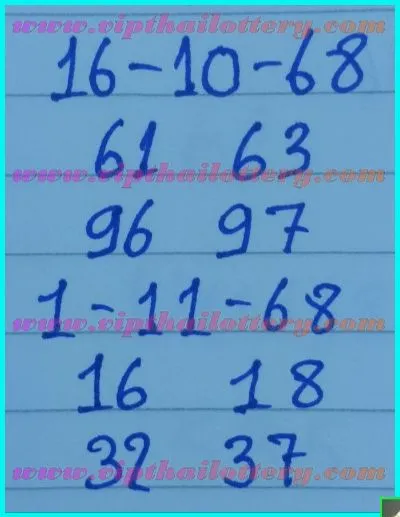 www.vipthailottery.com
16-10-68
61 63
www.vipthailottery.com
96 97
1-11-68
www.vipthailottery.com
16 18
32 37
www.vipthailottery.com